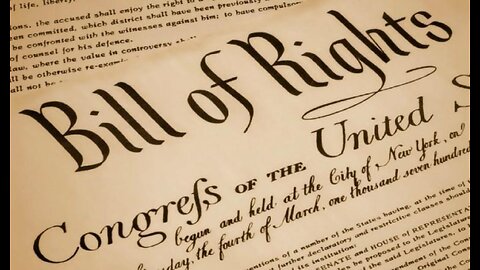 of life, liberty,
ions, the accused shall enjoy the right to a
een committed, which district shall have been previously
be confronted with the witnesses against him; to have compuls
of counsel for his defence.
law, where the value in controversy
all be otherwise re-exam
all not be
Bill of Rights
Congreſs OF THE United S
begun and held at the City of New York, on
sday, the fourth of March, one thousand seven hundred
entions of a number of the States having, at the time of
further declaratory and restrictive clauses should
its institution:
ENATE and HOUSE of REPRESENTAT
be proposed to the Legislatures
the said Legislatures,